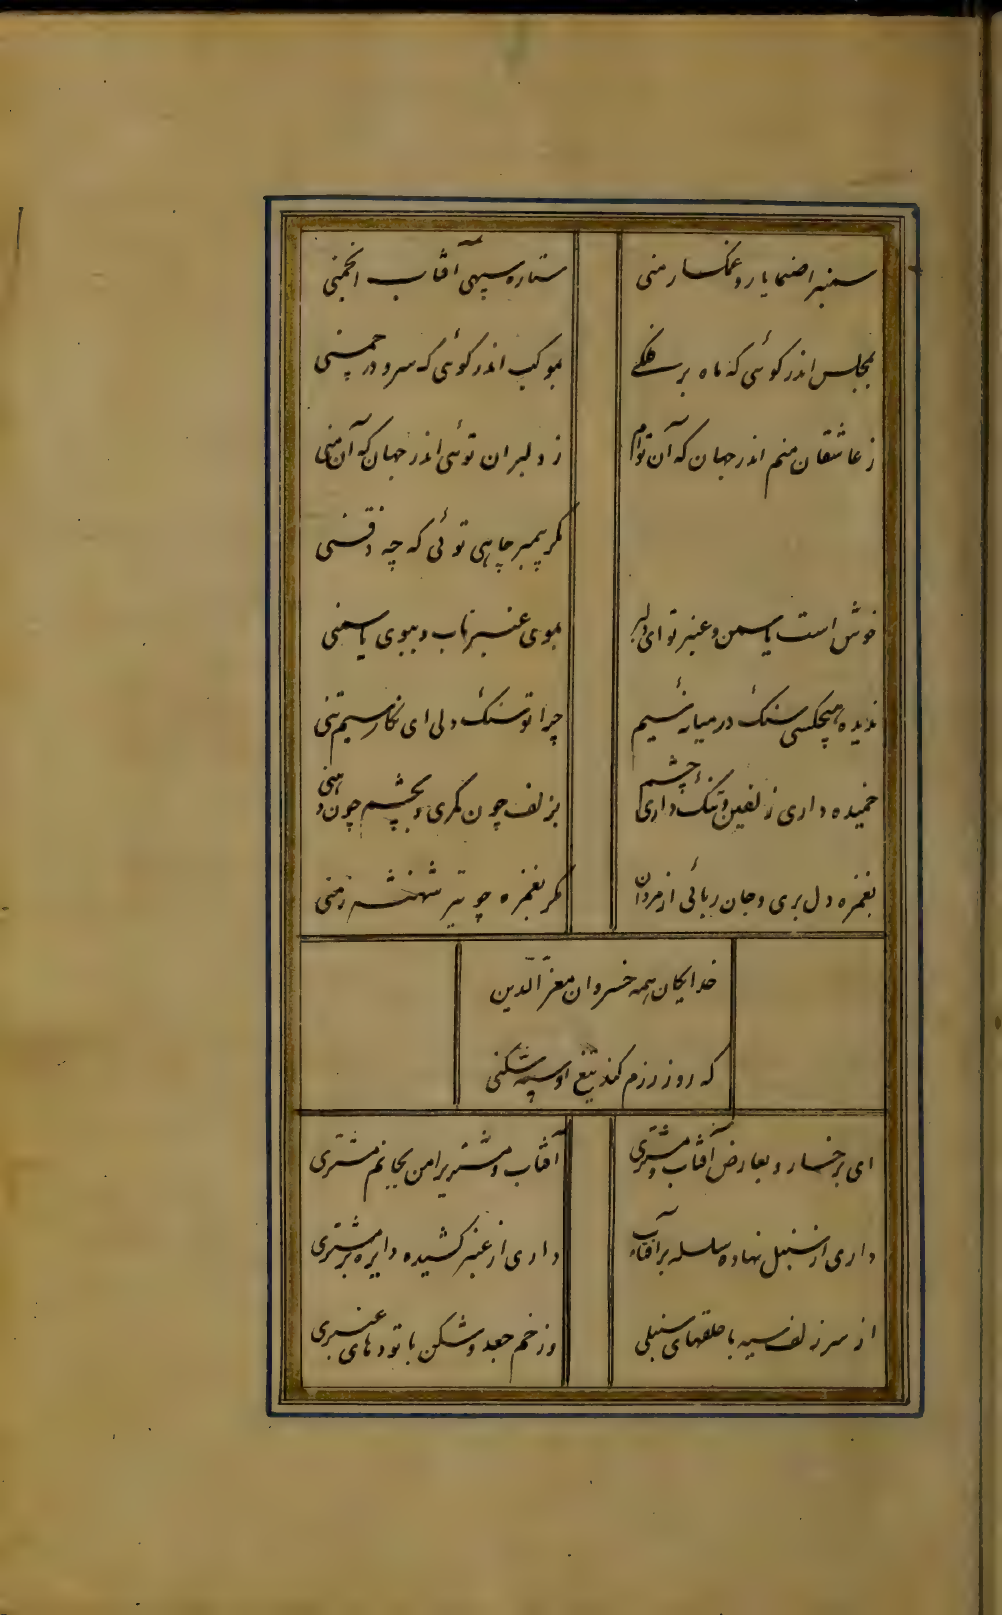 سمنبرا صنما یار و غمکسار منی
ستاره سپهی آفتاب انجمنی
بمجلس اندر کوئی که ماه بر فلکی
بموکب اندر کوئی که سرو در چمنی
ز عاشقان منم اندر جهان که آن توام
ز دلبران توئی اندر جهان که آن منی
مکر پیمبر چاهی توئی که چه ذقنی
خوش است یاسمن و عنبر تو ای دلبر
ببوی عنبر ناب و ببوی یاسمنی
ندیده هیچکسی سنک در میانه سیم
چرا تو سنک دلی ای نکار سیم تنی
خمیده داری زلفین و تنک داری چشم
بزلف چون کمری و بچشم چون دهنی
بغمزه دل بری و جان ربائی از مردان
مکر بغمزه چو تیر شهنشه زمنی
خدایکان همه خسروان معز الدین
که روز رزم کند تیغ او سپه شکنی
ای برخسار و بعارض آفتاب و مشتری
آفتاب و مشتریرا من بجانم مشتری
داری از سنبل نهاده سلسله بر آفتاب
داری از عنبر کشیده دایره بر مشتری
از سر زلف سیه با حلقهای سنبلی
وز خم جعد و شکن با تودهای عنبری